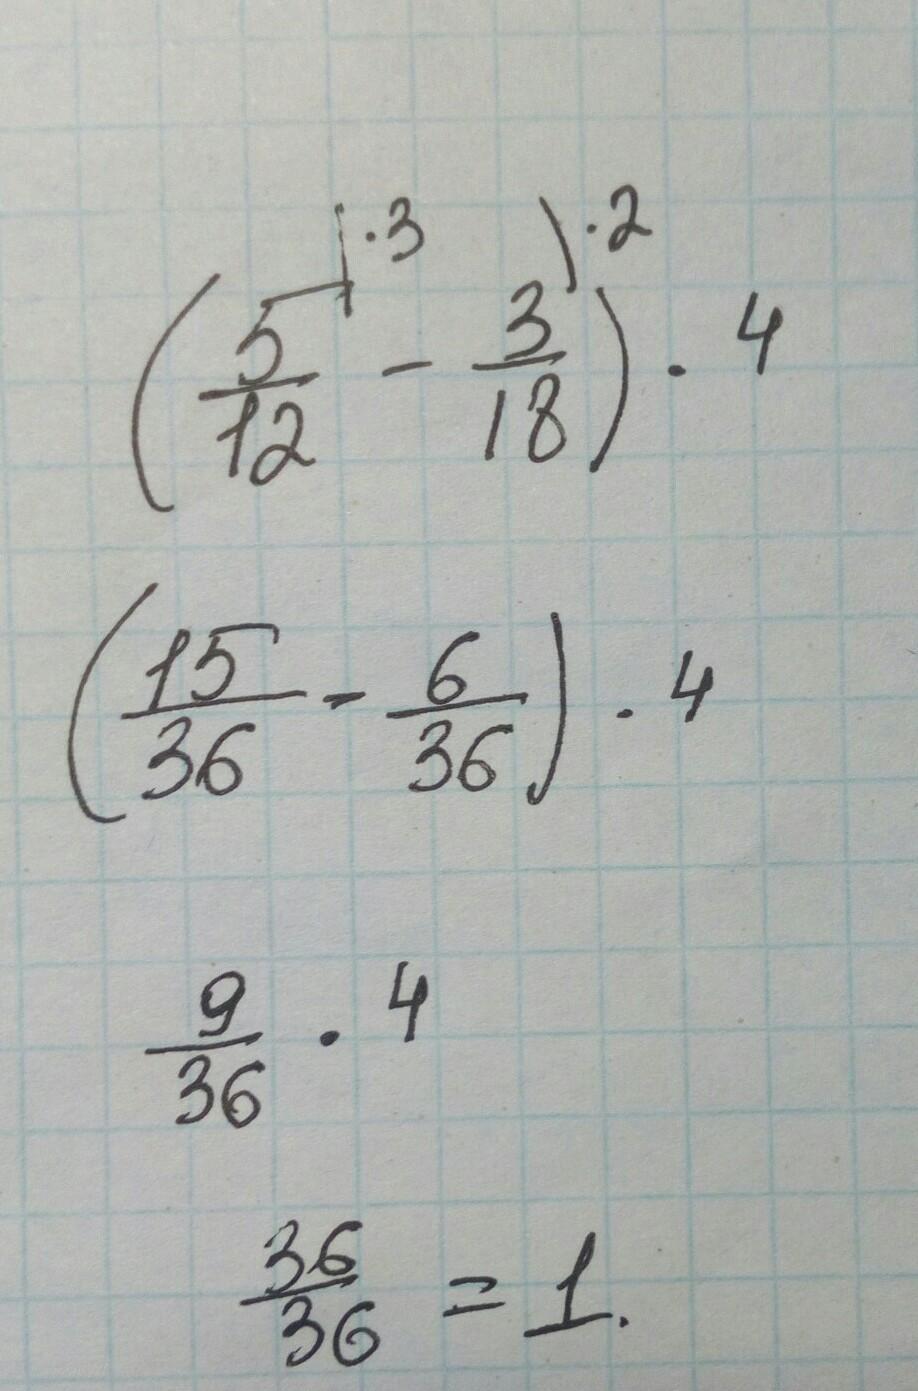 ·3 ·2
(5/12 - 3/18) · 4
(15/36 - 6/36) · 4
9/36 · 4
36/36 = 1.